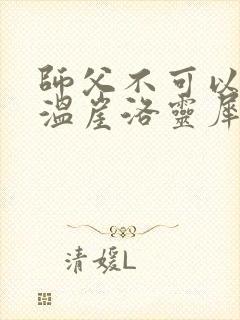 師父不可以
溫崖洛靈犀
清媛L